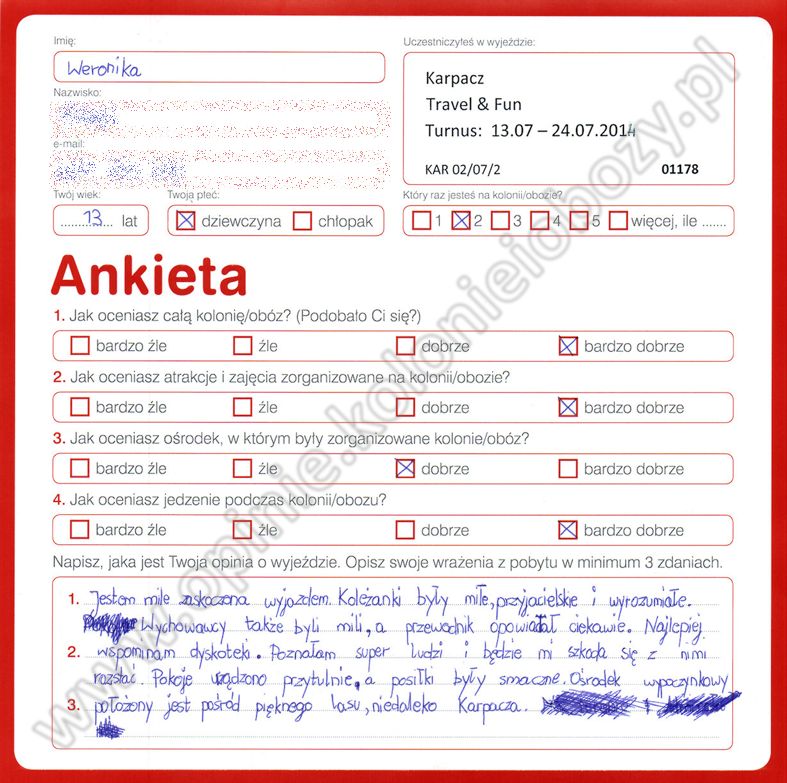 Imię:
Weronika
Nazwisko:
e-mail:
Twój wiek:
13 lat
Twoją płeć:
dziewczyna chłopak
Uczestniczyłeś w wyjeździe:
Karpacz
Travel & Fun
Turnus: 13.07 – 24.07.2014
KAR 02/07/2 01178
Który raz jesteś na kolonii/obozie?
1 2 3 4 5 więcej, ile .......
Ankieta
1. Jak oceniasz całą kolonię/obóz? (Podobało Ci się?)
bardzo źle źle dobrze bardzo dobrze
2. Jak oceniasz atrakcje i zajęcia zorganizowane na kolonii/obozie?
bardzo źle źle dobrze bardzo dobrze
3. Jak oceniasz ośrodek, w którym były zorganizowane kolonie/obóz?
bardzo źle źle dobrze bardzo dobrze
4. Jak oceniasz jedzenie podczas kolonii/obozu?
bardzo źle źle dobrze bardzo dobrze
Napisz, jaka jest Twoja opinia o wyjeździe. Opisz swoje wrażenia z pobytu w minimum 3 zdaniach.
1. Jestem mile zaskoczona wyjazdem. Koleżanki były miłe, przyjacielskie i wyrozumiałe.
Wychowawcy także byli mili, a przewodnik opowiadał ciekawie. Najlepiej
2. wspominam dyskoteki. Poznałam super ludzi i będzie mi szkoda się z nimi
rozstać. Pokoje urządzono przytulnie, a posiłki były smaczne. Ośrodek wypoczynkowy
3. położony jest pośród pięknego lasu, niedaleko Karpacza.
www.opinie.kolonieiobozy.pl